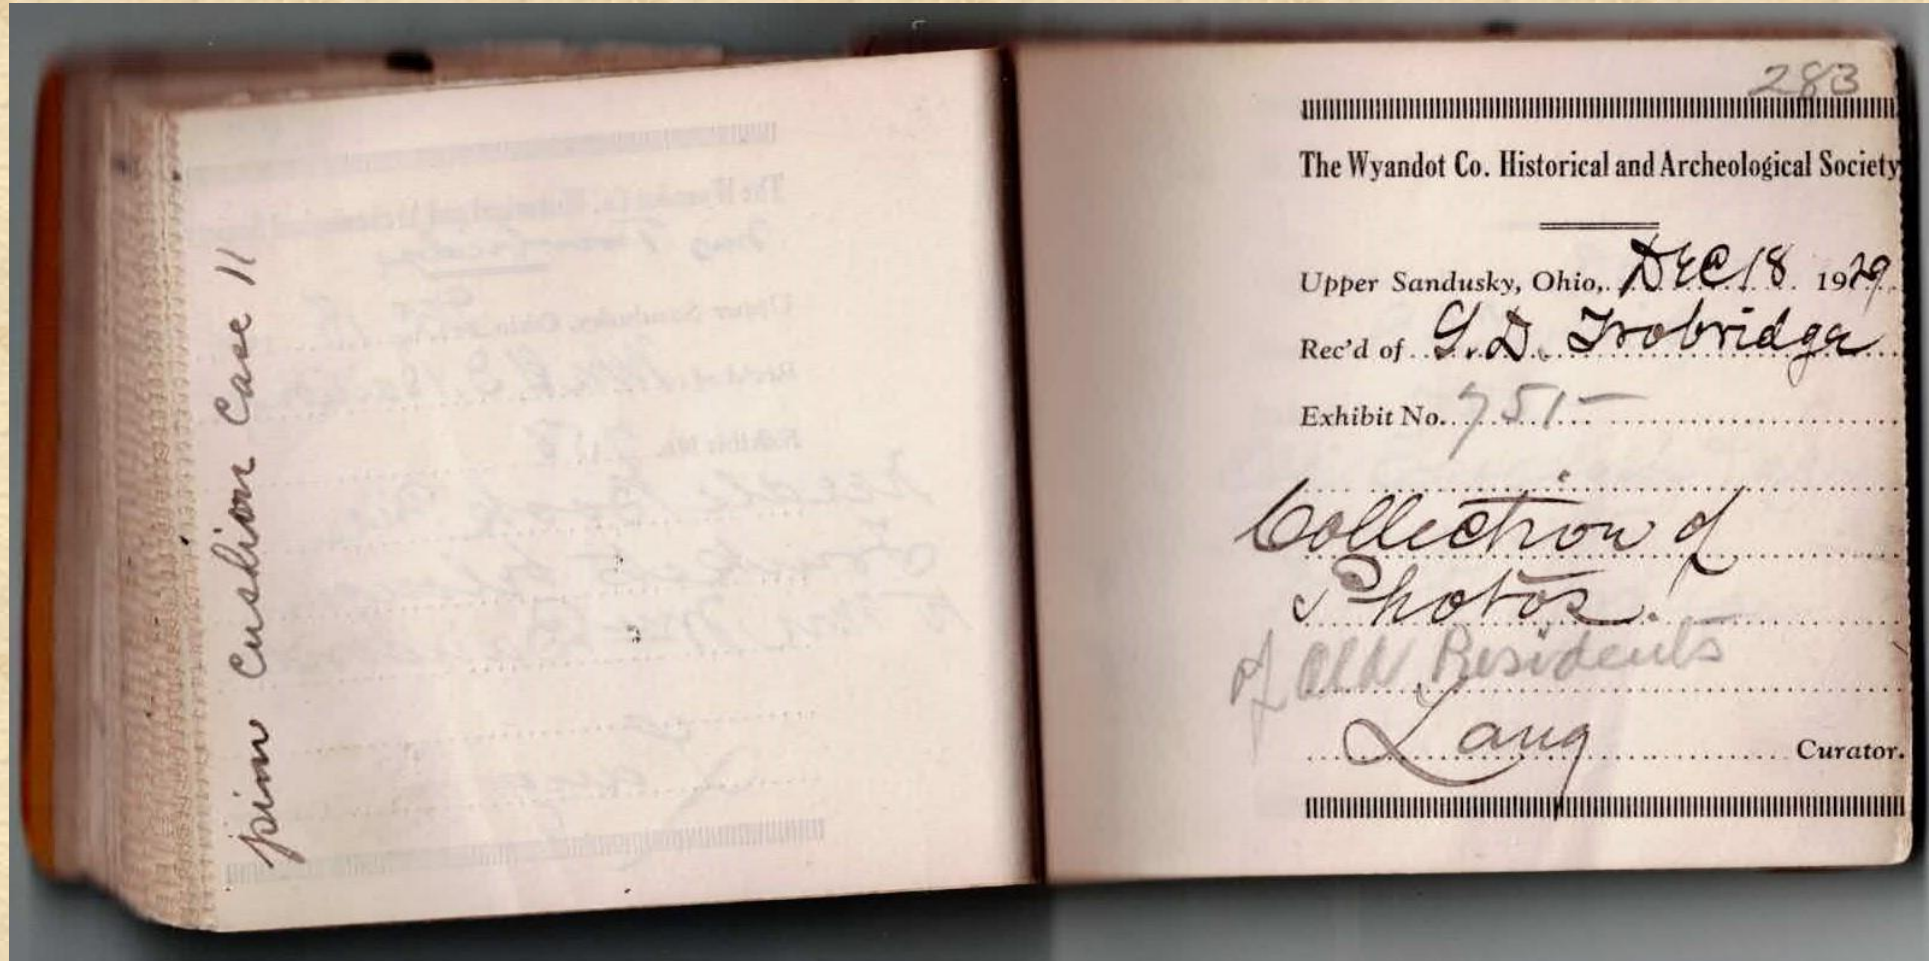 pin Cushion Case 11
283
The Wyandot Co. Historical and Archeological Society
Upper Sandusky, Ohio, DEC 18 1929
Rec'd of G. D. Trobridge
Exhibit No. 751
Collection of
Photos.
of Old Residents
Lang Curator.